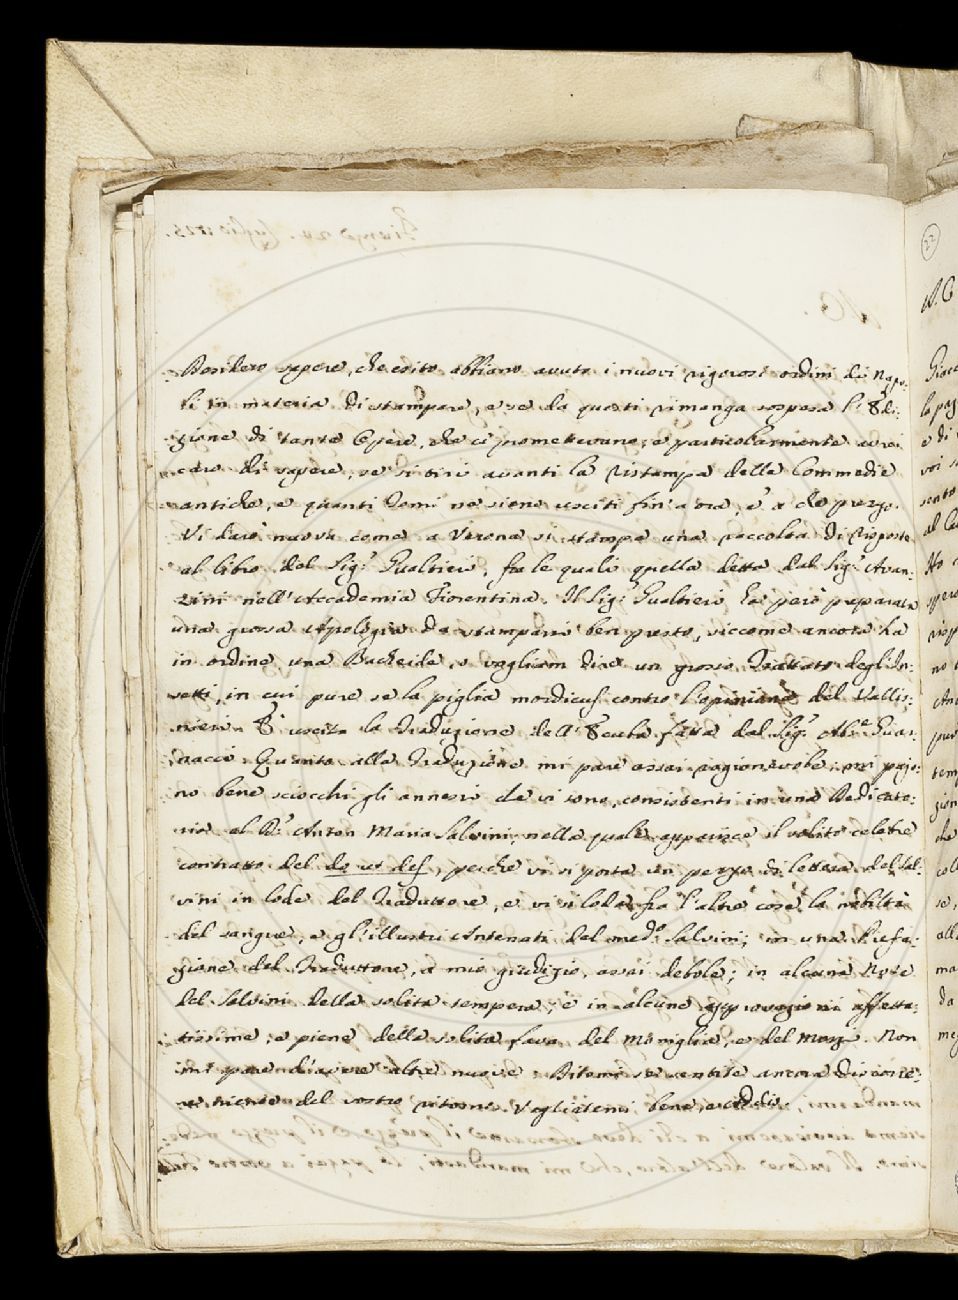 Desidero sapere, che esito abbiano avuto i nuovi rigorosi ordini di Napo-
li in materia di stampare, e se da questi rimanga sospesa l'Edi-
zione di tante Opere, che ci promettevano; e particolarmente avrei
caro di sapere, se si tiri avanti la ristampa delle Commedie
antiche, e quanti Tomi ne siene usciti fin'a ora, e a che prezzo.
Vi darò nuova come a Verona si stampa una raccolta di Risposte
al libro del Sig.r Gualtieri, fra le quali quella detta dal Sig.r Avan-
zini nell'Accademia Fiorentina. Il Sig.r Gualtieri ha però preparata
una grossa Apologia da stamparsi ben presto, siccome ancora ha
in ordine una Bacheide, o vogliam dire un grosso Trattato degl'In-
setti, in cui pure se la piglia mordicus contro l'opinione del Vallis-
nieri. È uscita la Traduzione dell'Ecuba fatta dal Sig.r Ab.e Guas-
tacci. Quanto alla Traduzione mi pare assai ragionevole; mi pajo-
no bene sciocchi gli annessi che vi sono, consistenti in una Dedicato-
ria al D.r Anton Maria Salvini, nella quale apparisce il solito celebre
contratto del do ut des, perché vi si porta un pezzo di lettera del Sal-
vini in lode del Traduttore, e vi si loda fra l'altre cose la nobiltà
del sangue, e gl'illustri Antenati del med.o Salvini; in una Prefa-
zione del Traduttore, a mio giudizio, assai debole; in alcune Note
del Salvini della solita tempera; e in alcune approvazioni affetta-
tissime, e piene della solita fava del Moniglia, e del Mozzi. Non
mi pare d'avere altre nuove. Ditemi se sentite ancora discorre-
re niente del vostro ritorno. Vogliatemi bene, e addio.
22